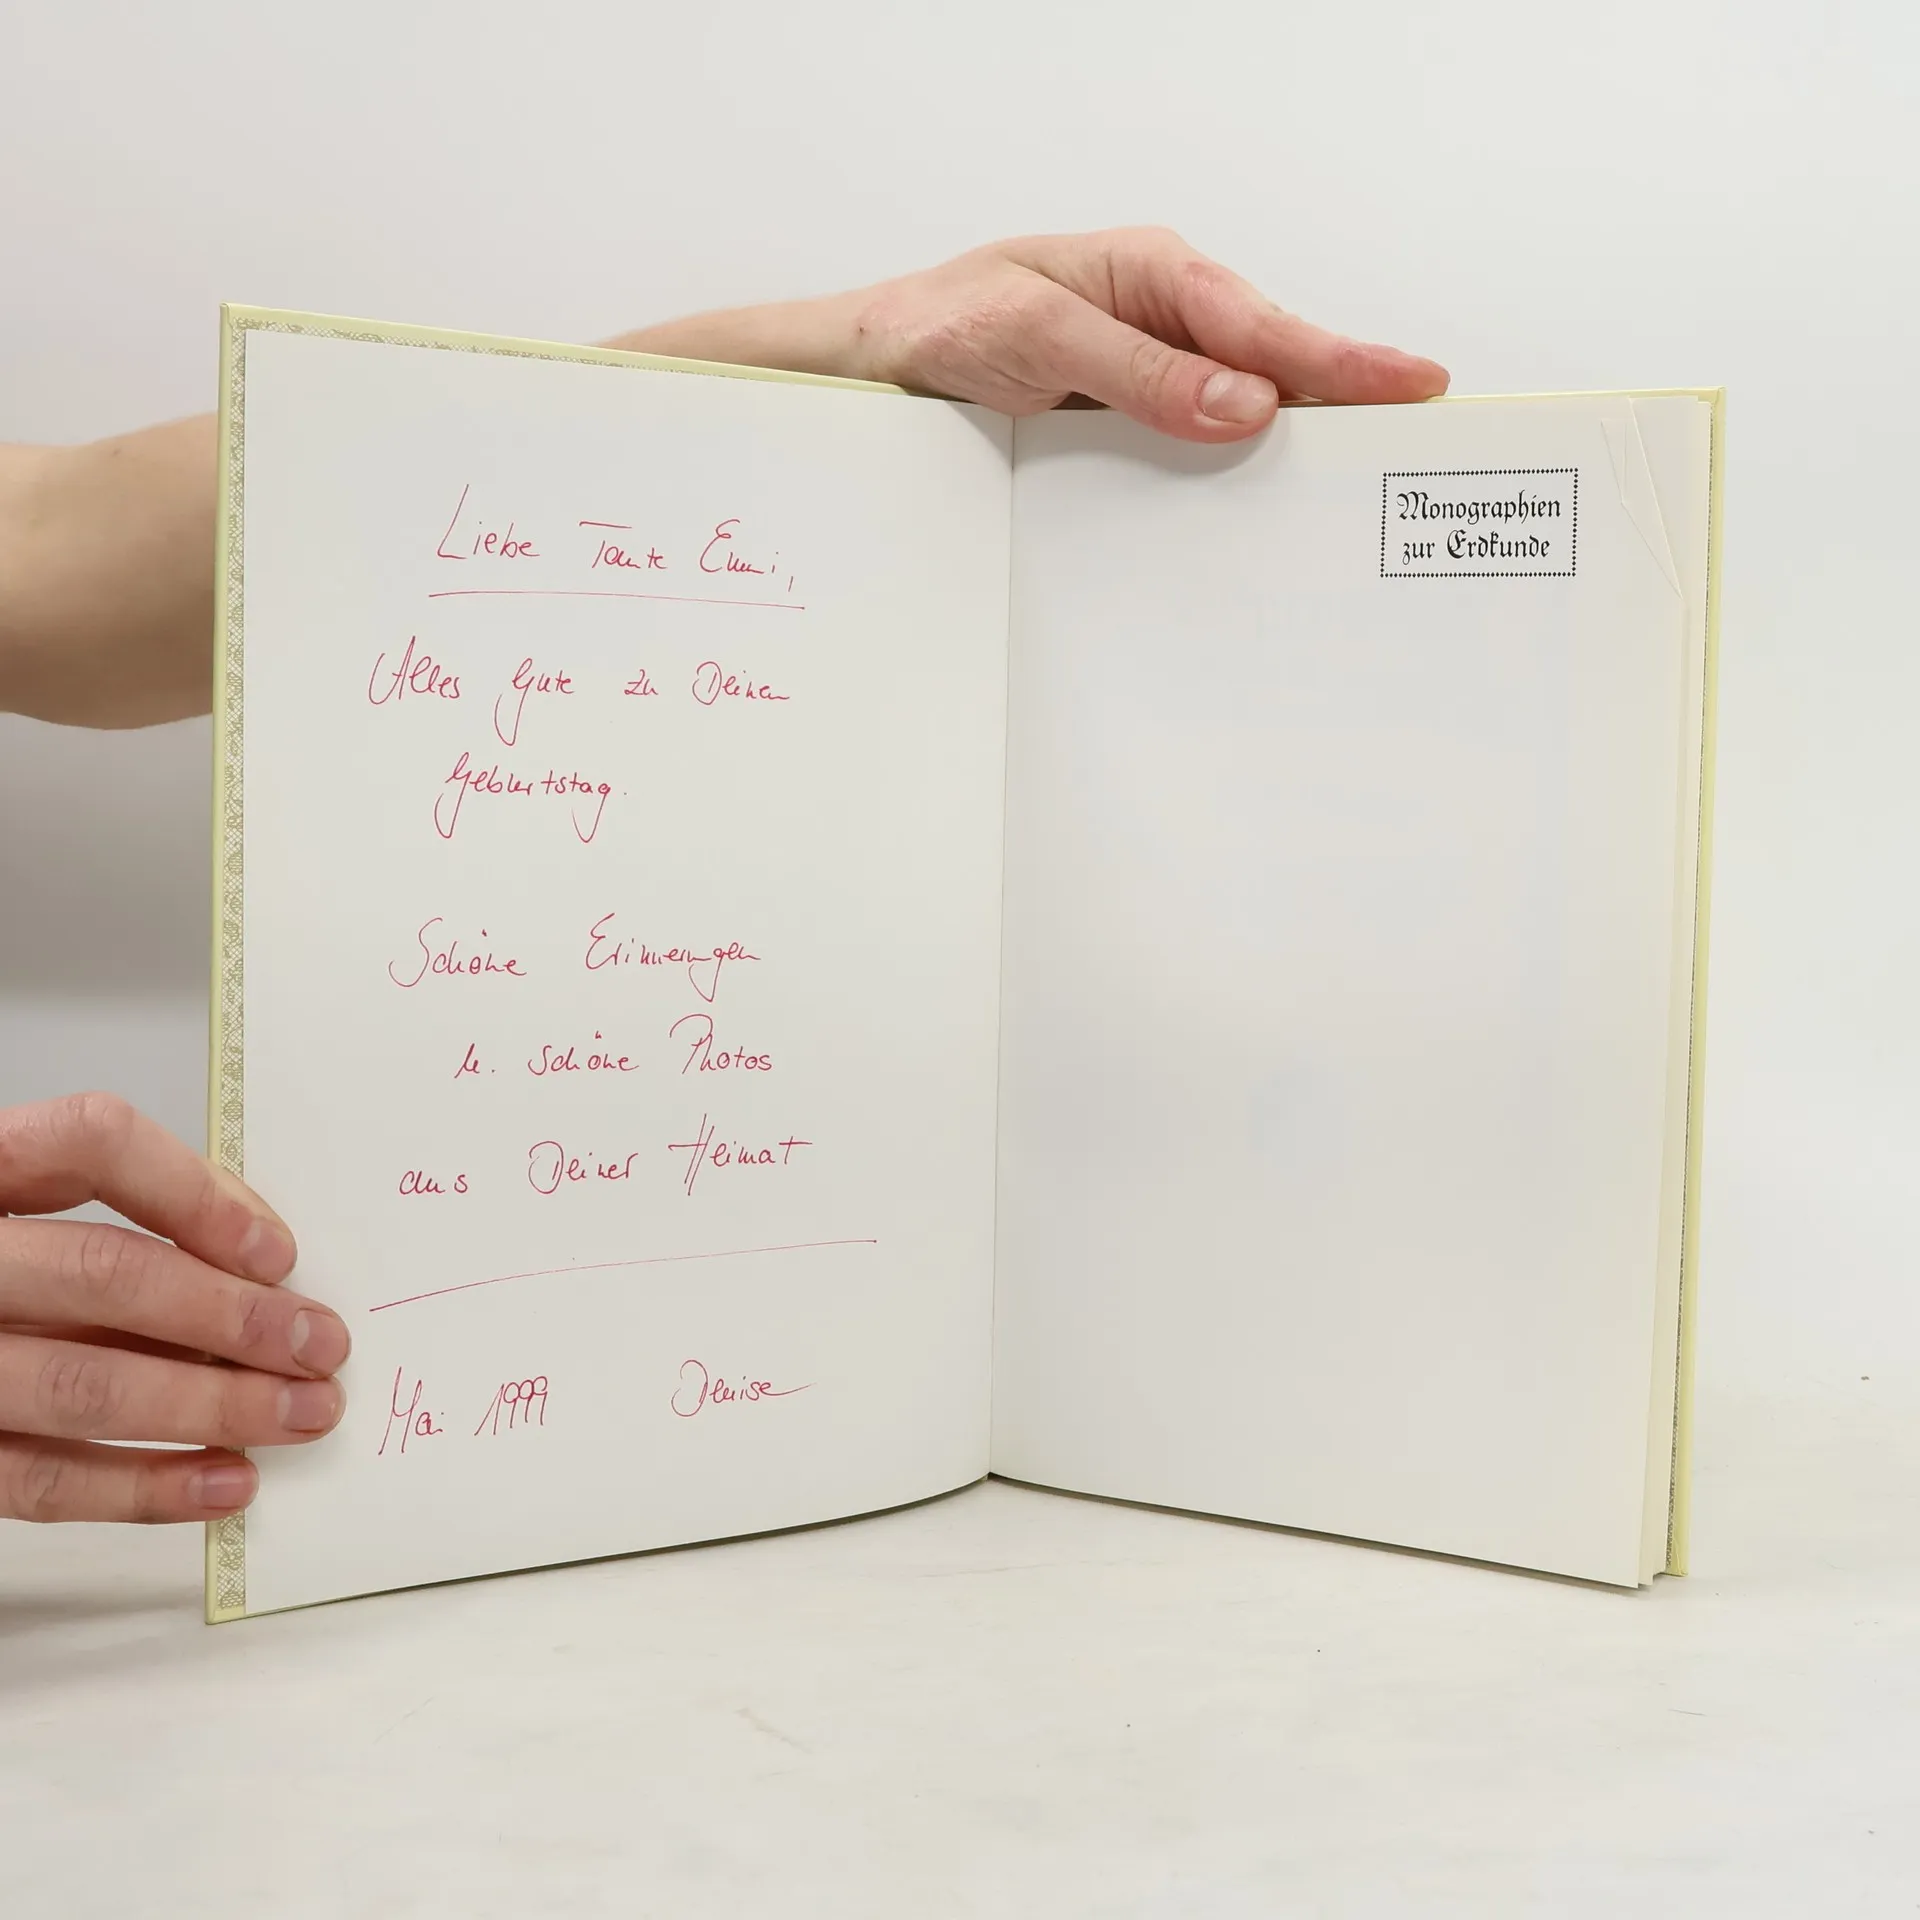 Liebe Tante Emmi,
Alles Gute zu Deinem
Geburtstag.
Schöne Erinnerungen
u. schöne Photos
aus Deiner Heimat
Mai 1999 Denise
Monographien
zur Erdkunde